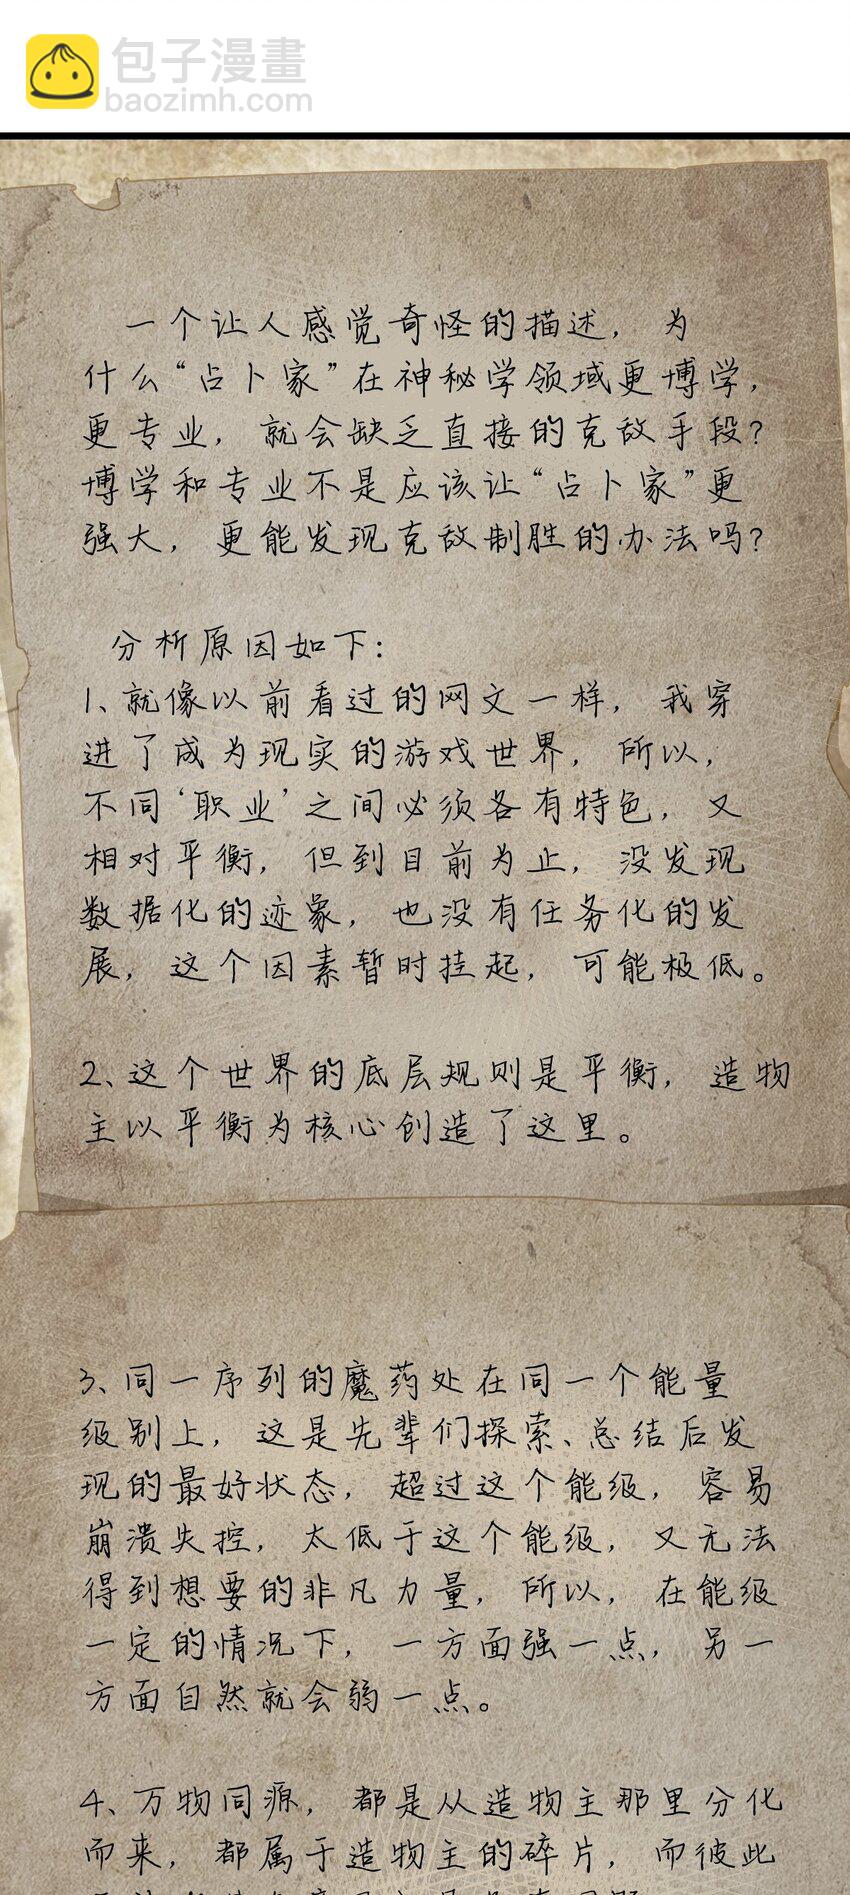 包子漫畫
baozimh.com
一个让人感觉奇怪的描述，为
什么“占卜家”在神秘学领域更博学，
更专业，就会缺乏直接的克敌手段？
博学和专业不是应该让“占卜家”更
强大，更能发现克敌制胜的办法吗？
分析原因如下：
1、就像以前看过的网文一样，我穿
进了成为现实的游戏世界，所以，
不同‘职业’之间必须各有特色，又
相对平衡，但到目前为止，没发现
数据化的迹象，也没有任务化的发
展，这个因素暂时挂起，可能极低。
2、这个世界的底层规则是平衡，造物
主以平衡为核心创造了这里。
3、同一序列的魔药处在同一个能量
级别上，这是先辈们探索、总结后发
现的最好状态，超过这个能级，容易
崩溃失控，太低于这个能级，又无法
得到想要的非凡力量，所以，在能级
一定的情况下，一方面强一点，另一
方面自然就会弱一点。
4、万物同源，都是从造物主那里分化
而来，都属于造物主的碎片，而彼此